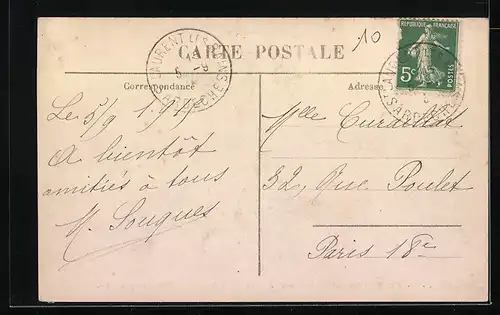 10
CARTE POSTALE
ST LAURENT LES BAINS
ARDÈCHE
REPUBLIQUE FRANÇAISE
5c
POSTES
Correspondance
Adresse
Le 5/9
A bientôt
amitiés à tous
M. Souques
Mlle
32, Rue Poulet
Paris 18e